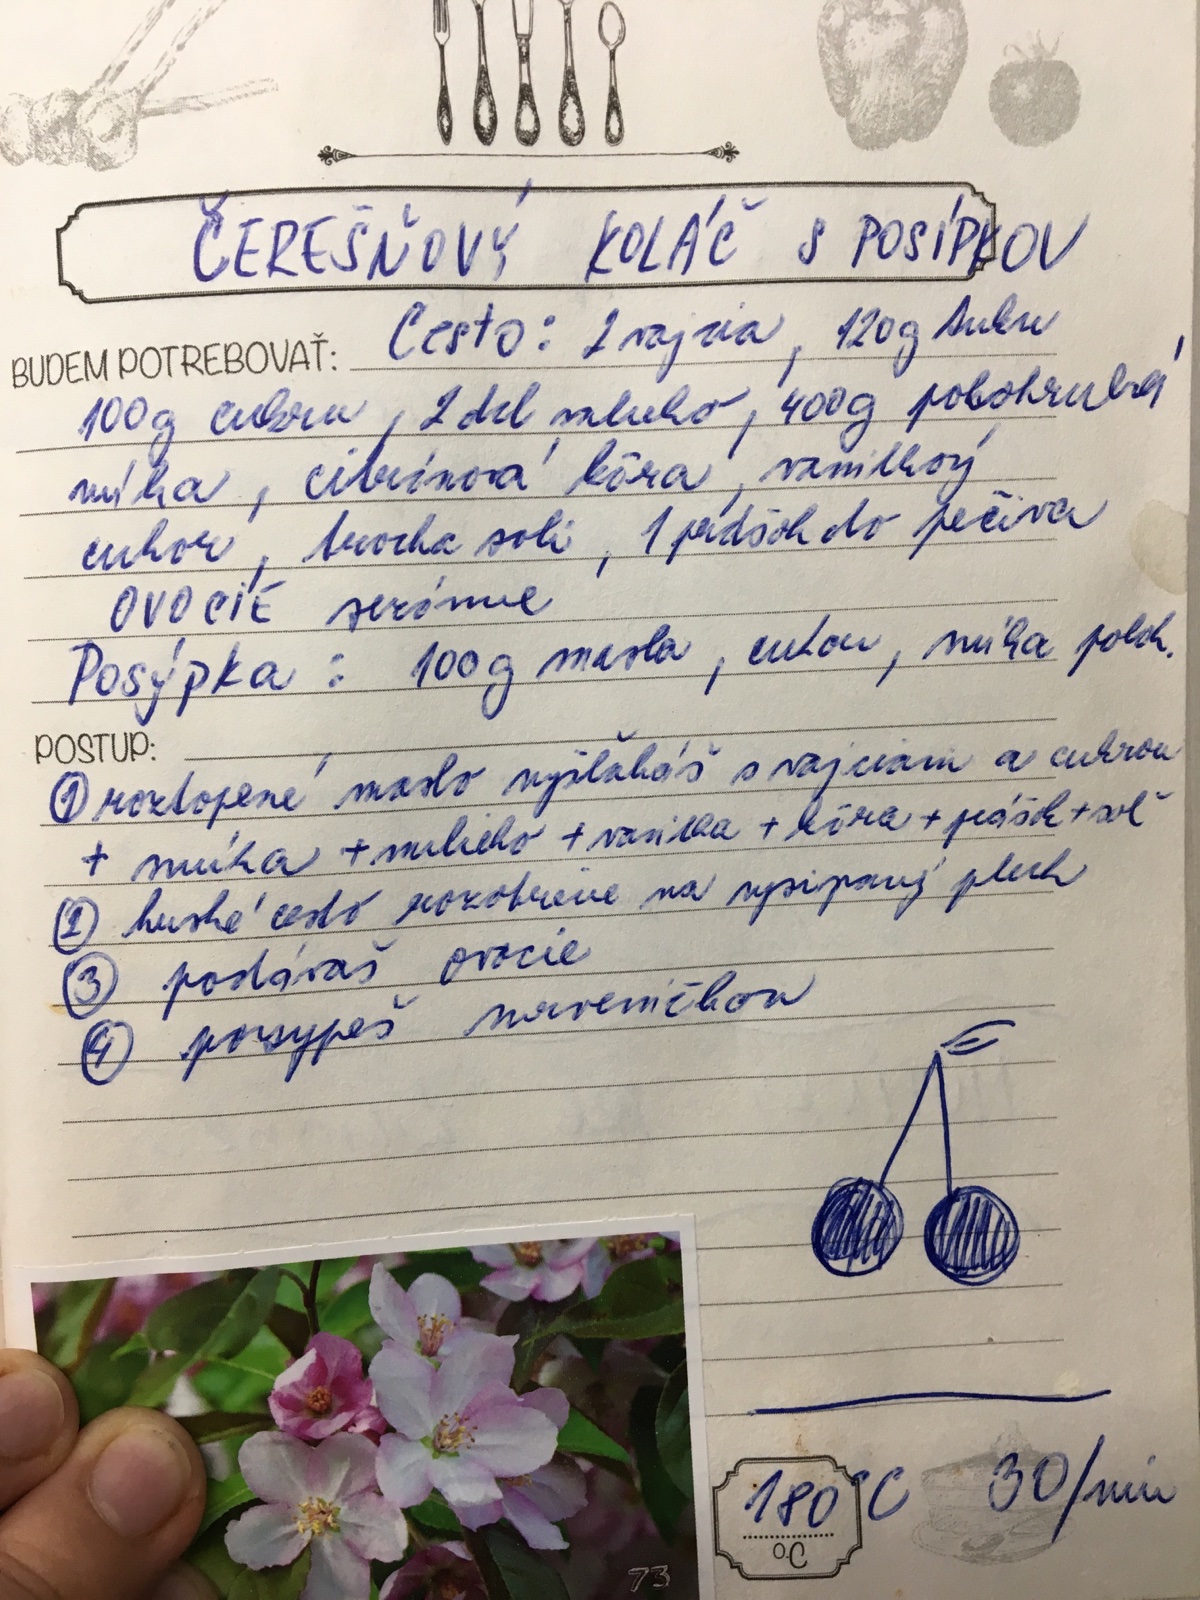 ČEREŠŇOVÝ KOLÁČ S POSÍPKOU
BUDEM POTREBOVAŤ: Cesto: 2 vajcia, 120g tuku
100g cukru, 2 dcl mlieko, 400g polohrubá
múka, citrónová kôra, vanilkový
cukor, trocha soli, 1 prášok do pečiva
OVOCIE sezónne
Posýpka: 100g masla, cukor, múka poloh.
POSTUP:
① roztopené maslo vyšľaháš s vajciam a cukrom
+ múka + mlieko + vanilka + kôra + prášok + soľ
② husté cesto rozotrieme na vysipaný plech
③ podávaš ovocie
④ posypeš mrveničkou
180°C 30/min
°C
73